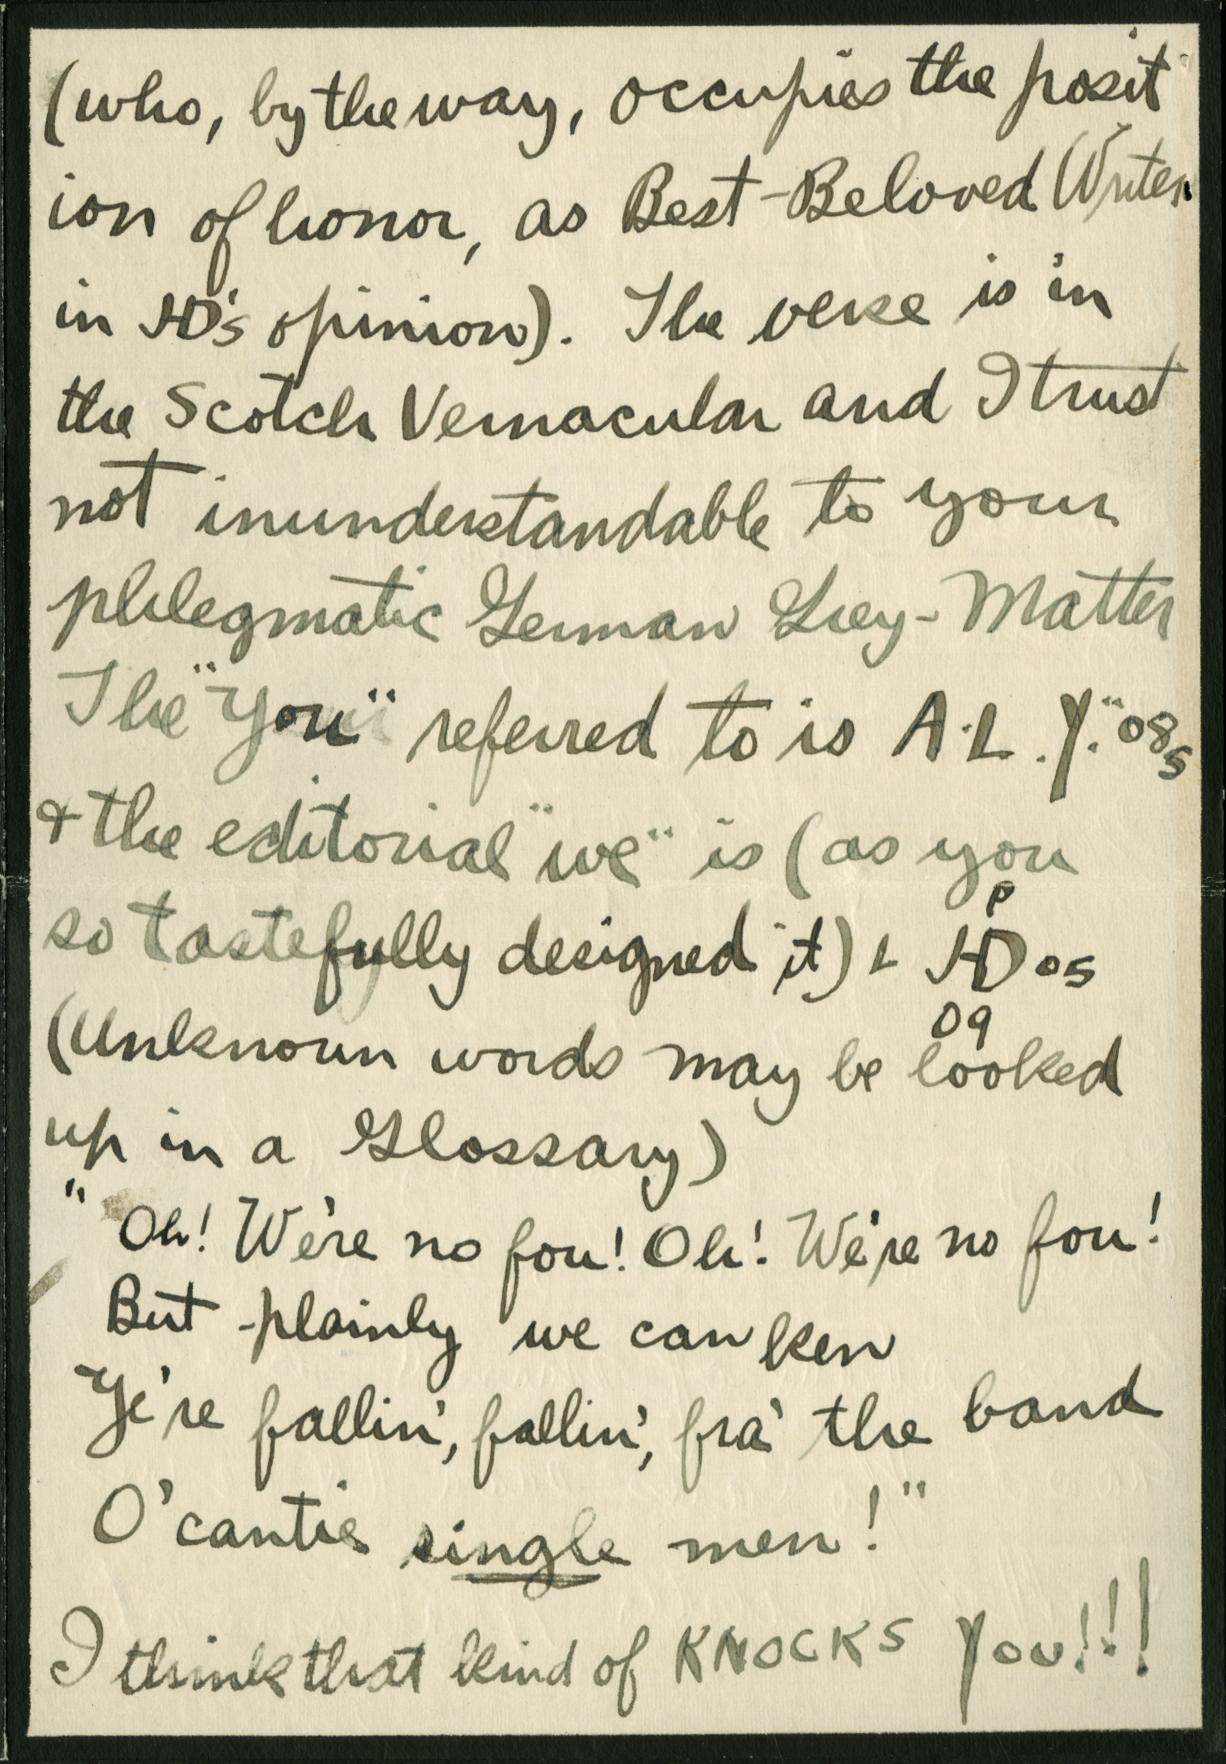 (who, by the way, occupies the posit
ion of honor, as Best-Beloved Writer
in HD's opinion). The verse is in
the Scotch Vernacular and I trust
not inunderstandable to your
phlegmatic German Grey-Matter
The "You" referred to is A.L.Y. "08s
& the editorial "we" is (as you
so tastefully designed it) HD os
P
09
(Unknown words may be looked
up in a Glossary)
" Oh! We're no fou! Oh! We're no fou!
But plainly we can ken
Ye're fallin', fallin', fra' the band
O' cantie single men!"
I think that kind of KNOCKS You!!!